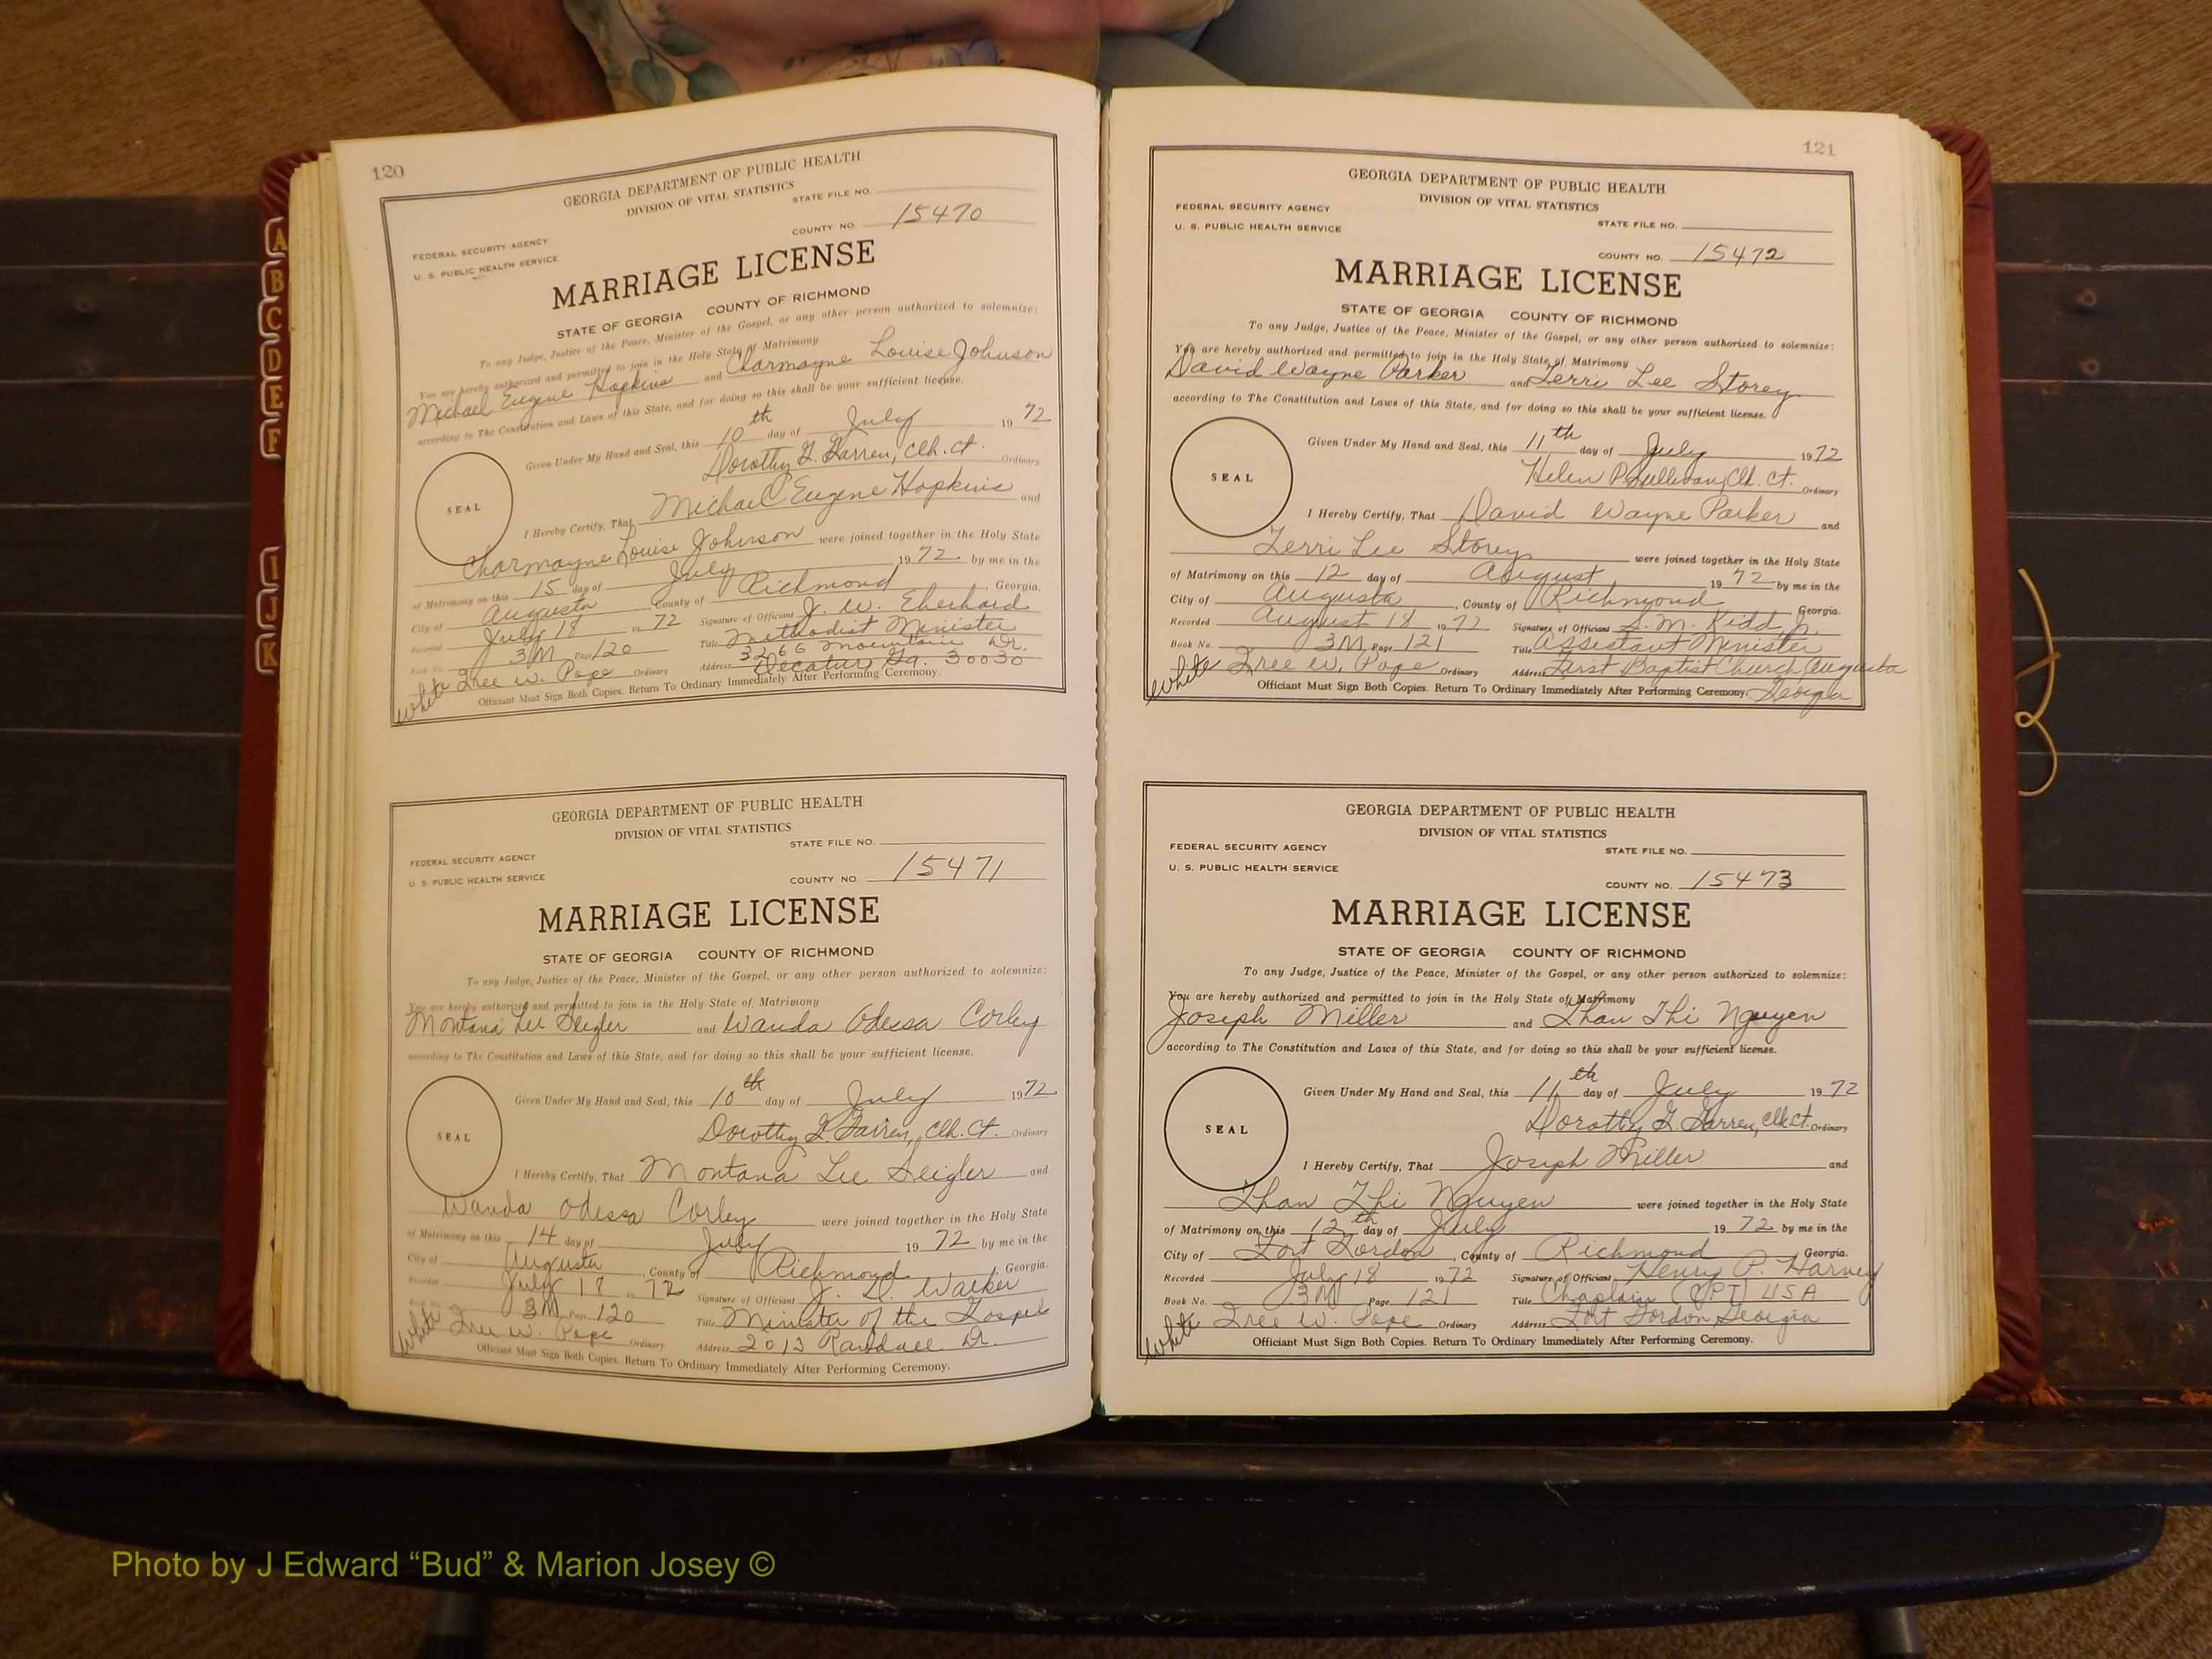 120
GEORGIA DEPARTMENT OF PUBLIC HEALTH
DIVISION OF VITAL STATISTICS
STATE FILE NO.
FEDERAL SECURITY AGENCY
U. S. PUBLIC HEALTH SERVICE
COUNTY NO. 15470
MARRIAGE LICENSE
STATE OF GEORGIA COUNTY OF RICHMOND
To any Judge, Justice of the Peace, Minister of the Gospel, or any other person authorized to solemnize:
You are hereby authorized and permitted to join in the Holy State of Matrimony
Michael Eugene Hopkins and Charmayne Louise Johnson
according to The Constitution and Laws of this State, and for doing so this shall be your sufficient license.
Given Under My Hand and Seal, this 10th day of July 1972
Dorothy G. Garren, Clk. Ct. Ordinary
SEAL
I Hereby Certify, That Michael Eugene Hopkins and
Charmayne Louise Johnson were joined together in the Holy State
of Matrimony on this 15 day of July 1972 by me in the
City of Augusta, County of Richmond, Georgia.
Recorded July 18 1972 Signature of Officiant J. W. Eberhard
Book No. 3M Page 120 Title Methodist Minister
3266 Mountain Dr.
White Tree W. Pope Ordinary Address Decatur, Ga. 30030
Officiant Must Sign Both Copies. Return To Ordinary Immediately After Performing Ceremony.
GEORGIA DEPARTMENT OF PUBLIC HEALTH
DIVISION OF VITAL STATISTICS
STATE FILE NO.
FEDERAL SECURITY AGENCY
U. S. PUBLIC HEALTH SERVICE
COUNTY NO. 15471
MARRIAGE LICENSE
STATE OF GEORGIA COUNTY OF RICHMOND
To any Judge, Justice of the Peace, Minister of the Gospel, or any other person authorized to solemnize:
You are hereby authorized and permitted to join in the Holy State of Matrimony
Montana Lee Seigler and Wanda Odessa Corley
according to The Constitution and Laws of this State, and for doing so this shall be your sufficient license.
Given Under My Hand and Seal, this 10th day of July 1972
Dorothy G. Garren, Clk. Ct. Ordinary
SEAL
I Hereby Certify, That Montana Lee Seigler and
Wanda Odessa Corley were joined together in the Holy State
of Matrimony on this 14 day of July 1972 by me in the
City of Augusta, County of Richmond, Georgia.
Recorded July 18 1972 Signature of Officiant J. D. Walker
Book No. 3M Page 120 Title Minister of the Gospel
White Tree W. Pope Ordinary Address 2013 Dr.
Officiant Must Sign Both Copies. Return To Ordinary Immediately After Performing Ceremony.
121
GEORGIA DEPARTMENT OF PUBLIC HEALTH
DIVISION OF VITAL STATISTICS
FEDERAL SECURITY AGENCY
U. S. PUBLIC HEALTH SERVICE
STATE FILE NO.
COUNTY NO. 15472
MARRIAGE LICENSE
STATE OF GEORGIA COUNTY OF RICHMOND
To any Judge, Justice of the Peace, Minister of the Gospel, or any other person authorized to solemnize:
You are hereby authorized and permitted to join in the Holy State of Matrimony
David Wayne Parker and Terri Lee Storey
according to The Constitution and Laws of this State, and for doing so this shall be your sufficient license.
Given Under My Hand and Seal, this 11th day of July 1972
Helen P. Sullivan, Clk. Ct. Ordinary
SEAL
I Hereby Certify, That David Wayne Parker and
Terri Lee Storey were joined together in the Holy State
of Matrimony on this 12 day of August 1972 by me in the
City of Augusta, County of Richmond, Georgia.
Recorded August 18 1972 Signature of Officiant S. M. Kidd, Jr.
Book No. 3M Page 121 Title Assistant Minister
White Tree W. Pope Ordinary Address First Baptist Church, Augusta
Officiant Must Sign Both Copies. Return To Ordinary Immediately After Performing Ceremony. Georgia
GEORGIA DEPARTMENT OF PUBLIC HEALTH
DIVISION OF VITAL STATISTICS
FEDERAL SECURITY AGENCY
STATE FILE NO.
U. S. PUBLIC HEALTH SERVICE
COUNTY NO. 15473
MARRIAGE LICENSE
STATE OF GEORGIA COUNTY OF RICHMOND
To any Judge, Justice of the Peace, Minister of the Gospel, or any other person authorized to solemnize:
You are hereby authorized and permitted to join in the Holy State of Matrimony
Joseph Miller and Than Thi Nguyen
according to The Constitution and Laws of this State, and for doing so this shall be your sufficient license.
Given Under My Hand and Seal, this 11th day of July 1972
Dorothy G. Garren, Clk Ct. Ordinary
SEAL
I Hereby Certify, That Joseph Miller and
Than Thi Nguyen were joined together in the Holy State
of Matrimony on this 12th day of July 1972 by me in the
City of Fort Gordon, County of Richmond, Georgia.
Recorded July 18 1972 Signature of Officiant Henry P. Harvey
Book No. 3M Page 121 Title Chaplain (CPT) USA
White Tree W. Pope Ordinary Address Fort Gordon, Georgia
Officiant Must Sign Both Copies. Return To Ordinary Immediately After Performing Ceremony.
A
B
C
D
E
F
I
J
K
Photo by J Edward “Bud” & Marion Josey ©